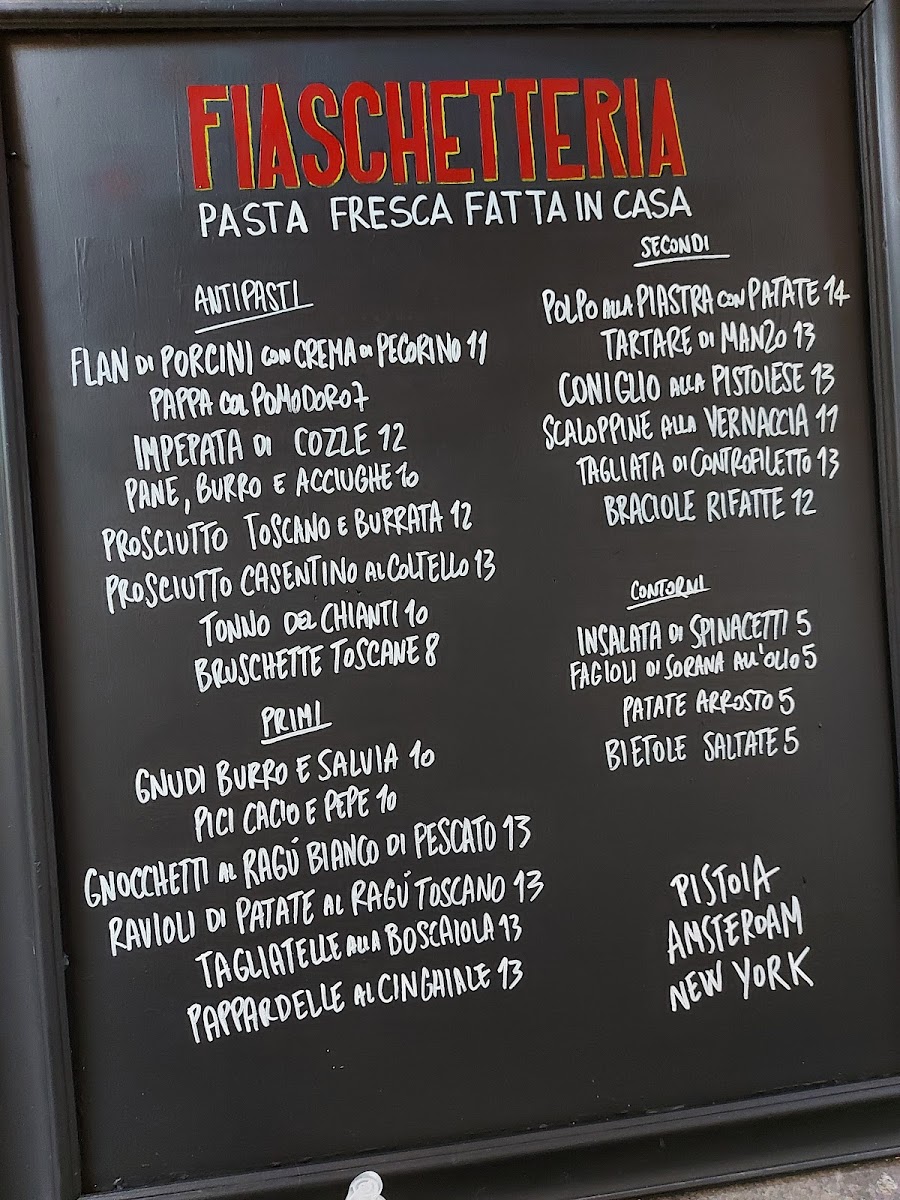 FIASCHETTERIA
PASTA FRESCA FATTA IN CASA
ANTIPASTI
FLAN DI PORCINI CON CREMA DI PECORINO 11
PAPPA COL POMODORO 7
IMPEPATA DI COZZE 12
PANE, BURRO E ACCIUGHE 10
PROSCIUTTO TOSCANO E BURRATA 12
PROSCIUTTO CASENTINO AL COLTELLO 13
TONNO DEL CHIANTI 10
BRUSCHETTE TOSCANE 8
PRIMI
GNUDI BURRO E SALVIA 10
PICI CACIO E PEPE 10
GNOCCHETTI AL RAGÚ BIANCO DI PESCATO 13
RAVIOLI DI PATATE AL RAGÚ TOSCANO 13
TAGLIATELLE ALLA BOSCAIOLA 13
PAPPARDELLE AL CINGHIALE 13
SECONDI
POLPO ALLA PIASTRA CON PATATE 14
TARTARE DI MANZO 13
CONIGLIO ALLA PISTOIESE 13
SCALOPPINE ALLA VERNACCIA 11
TAGLIATA DI CONTROFILETTO 13
BRACIOLE RIFATTE 12
CONTORNI
INSALATA DI SPINACETTI 5
FAGIOLI DI SORANA ALL'OLIO 5
PATATE ARROSTO 5
BIETOLE SALTATE 5
PISTOIA
AMSTERDAM
NEW YORK